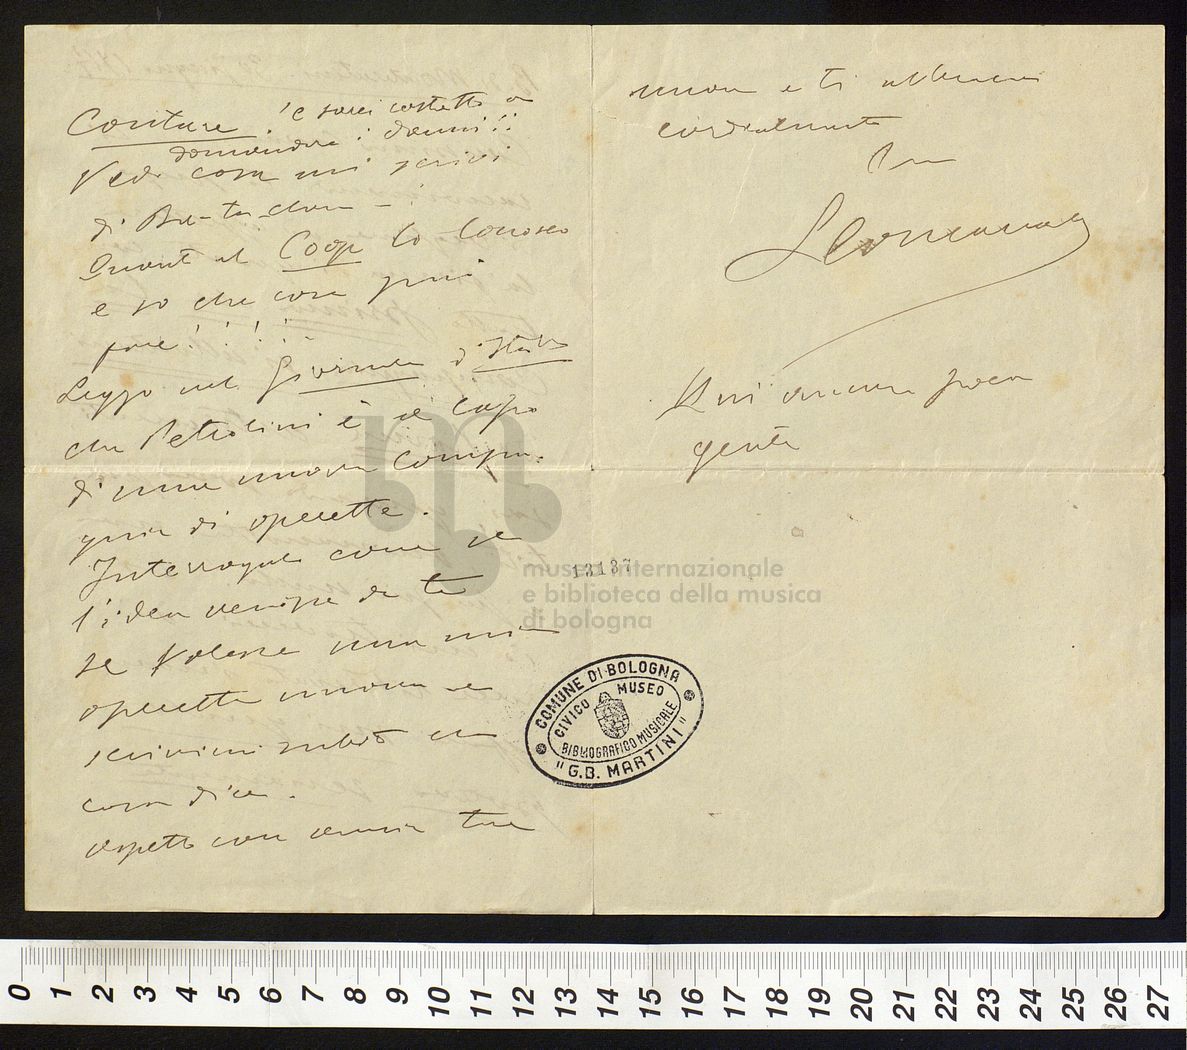 Contare! e sarei costretto a
domandare i danni!!
Vedi cosa mi scrivi
di
Quant al Coop lo conosco
e so che cosa può
fare!!!!
Leggo nel Giornale d'Italia
che Petrolini è il capo
di una nuova compa-
gnia di operette.
Interrogalo come se
l'idea venisse da te
se volesse una mia
operetta nuova e
scrivimi subito che
cosa dice.
Aspetto con ansia tue
nuove e ti abbraccio
cordialmente
Tuo
Leoncavallo
Qui ancora poca
gente
13137
museo internazionale
e biblioteca della musica
di bologna
COMUNE DI BOLOGNA
CIVICO MUSEO
BIBLIOGRAFICO MUSICALE
"G.B. MARTINI"
0 1 2 3 4 5 6 7 8 9 10 11 12 13 14 15 16 17 18 19 20 21 22 23 24 25 26 27